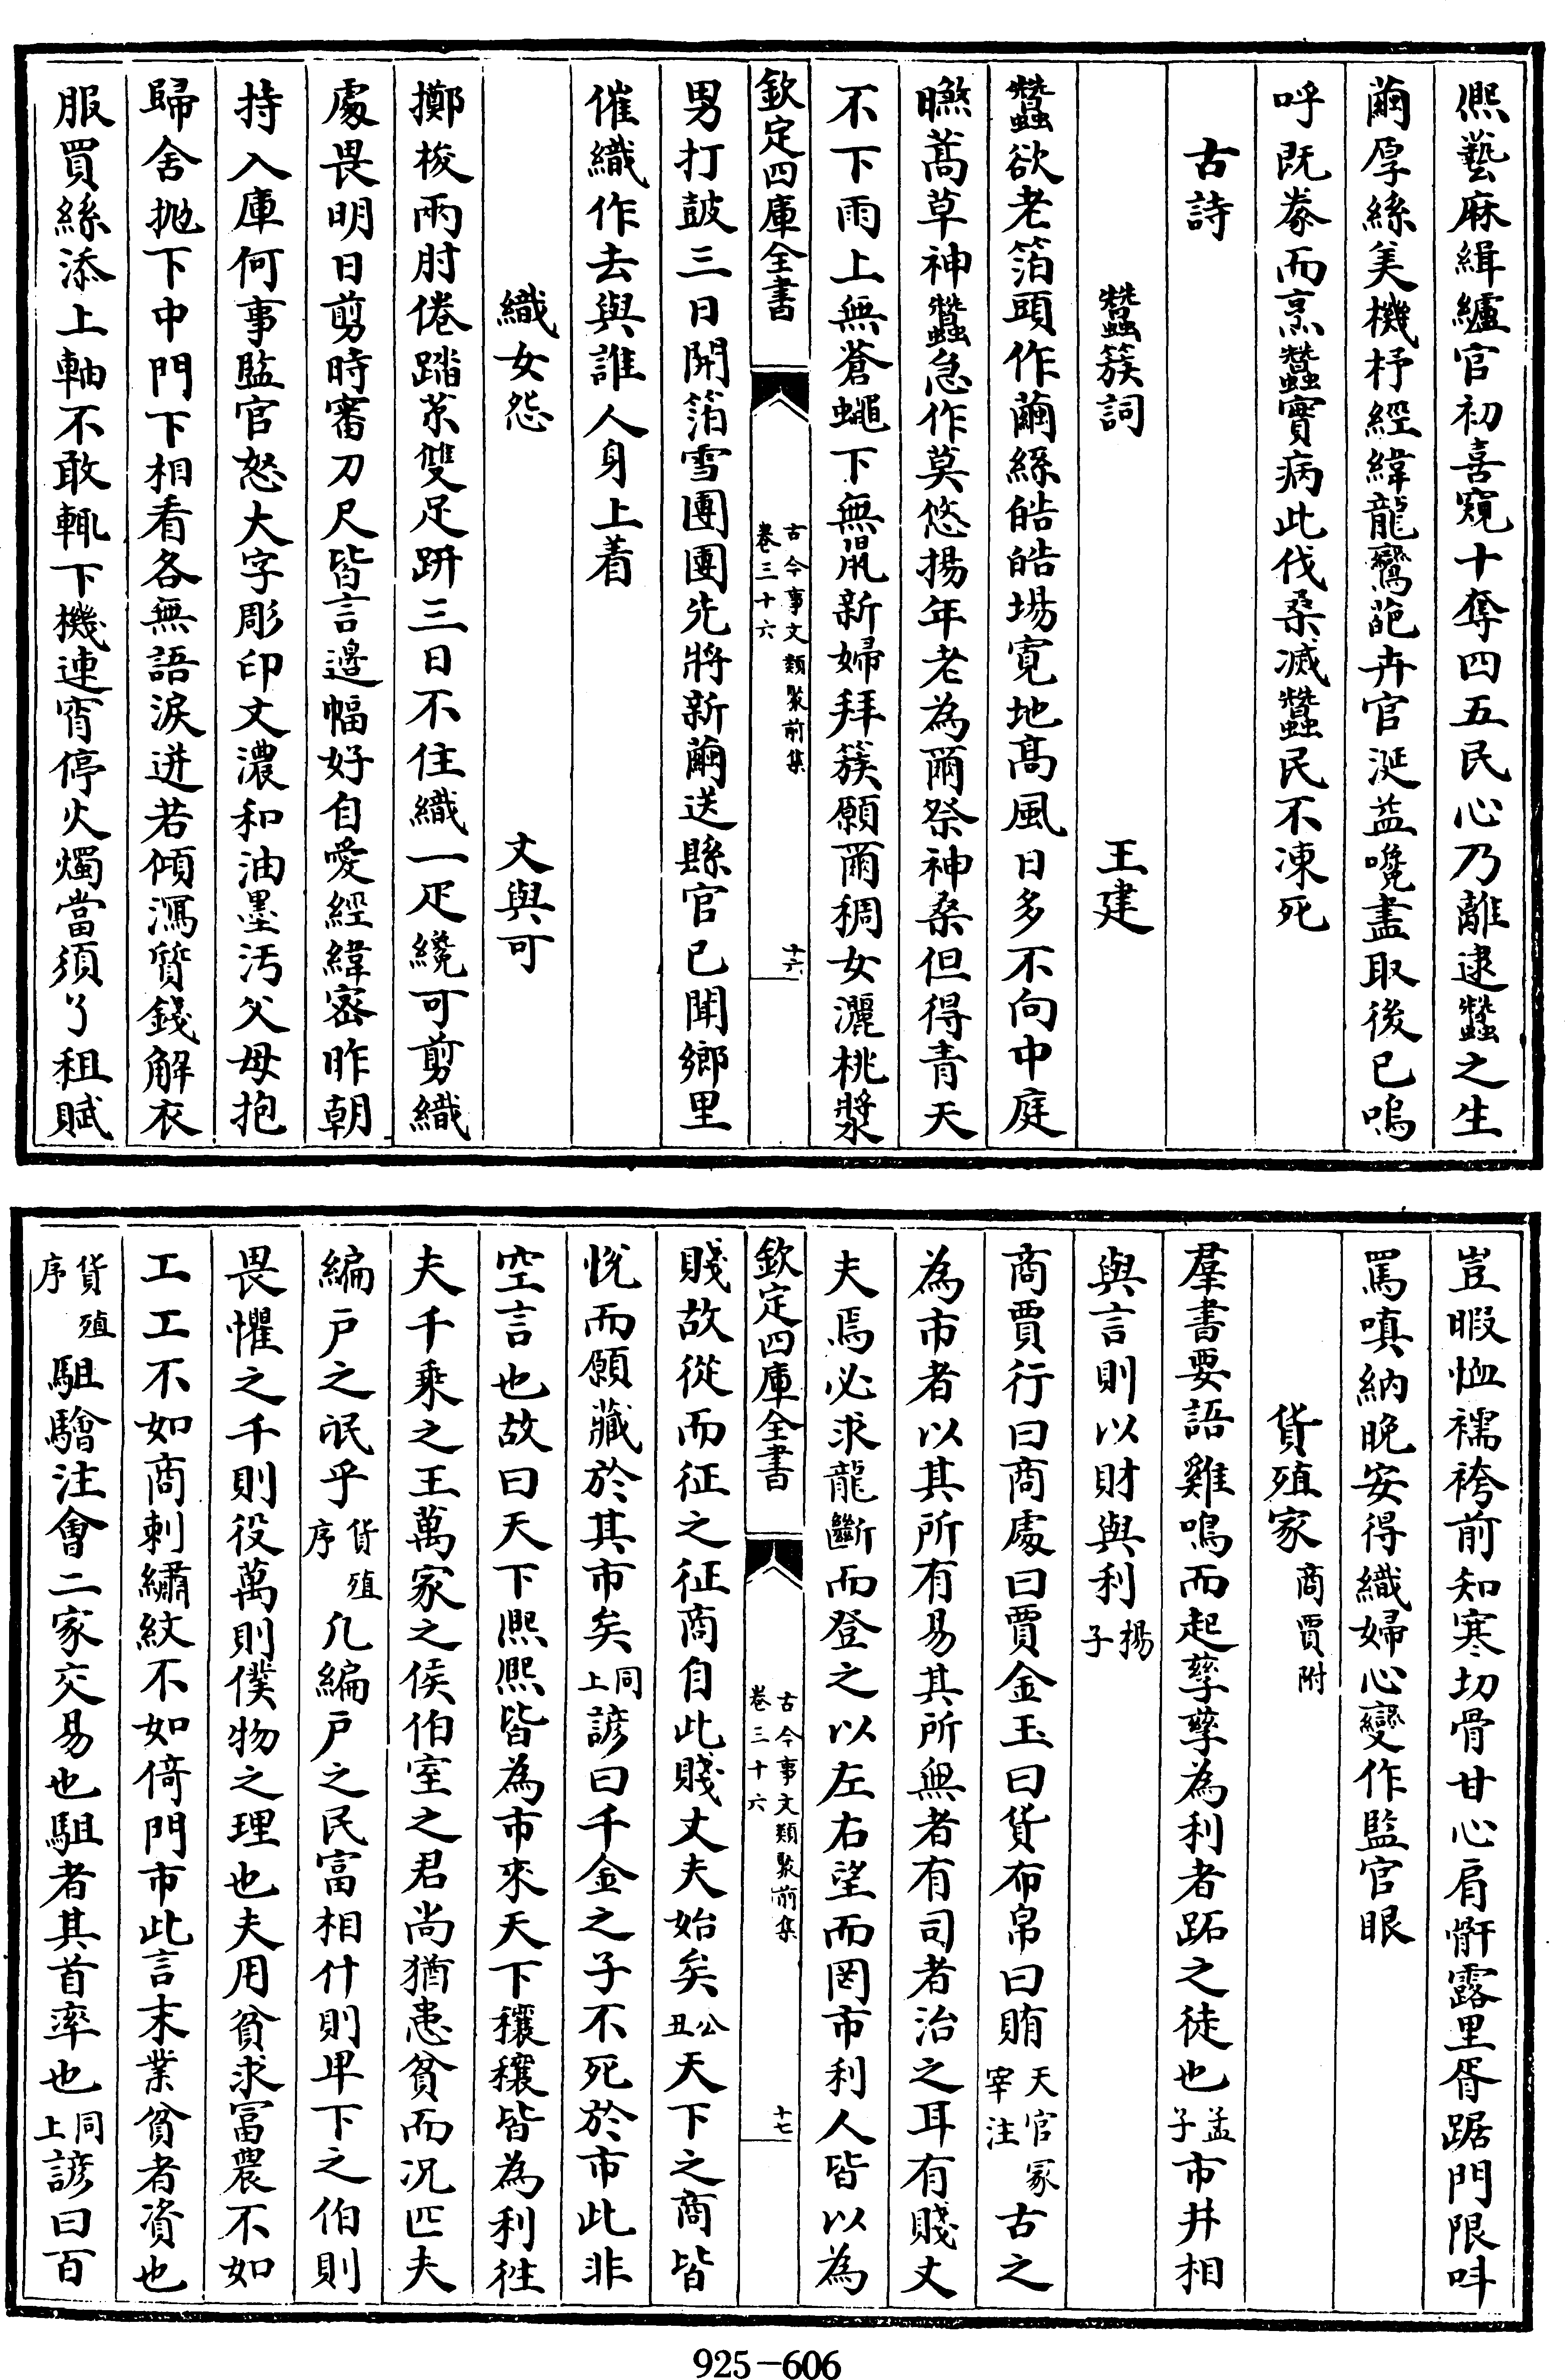 熈藝麻緝纑官初喜窺十奪四五民心乃離逮蠶之生
繭厚絲美機杼經緯龍鸞葩卉官涎益嚵盡取後已嗚
呼既豢而烹蠶實病此伐桑滅蠶民不凍死
古詩
蠶簇詞 王建
蠶欲老箔頭作繭絲皓皓場寛地髙風日多不向中庭
㬠蒿草神蠶急作莫悠揚年老為爾祭神桑但得青天
不下雨上無蒼蠅下無鼠新婦拜簇願爾稠女灑桃漿
欽定四庫全書 古今事文類聚前集 卷三十六 十六
男打鼓三日開箔雪團團先將新繭送縣官已聞鄉里
催織作去與誰人身上着
織女怨 文與可
擲梭兩肘倦踏䋈雙足趼三日不住織一疋纔可剪織
處畏明日剪時審刀尺皆言邊幅好自愛經緯密昨朝
持入庫何事監官怒大字彫印文濃和油墨汚父母抱
歸舍抛下中門下相看各無語淚迸若傾瀉質錢解衣
服買絲添上軸不敢輒下機連宵停火燭當須了租賦
豈暇恤襦袴前知寒切骨甘心肩骭露里胥踞門限呌
罵嗔納晩安得織婦心變作監官眼
貨殖家 商賈附
羣書要語雞鳴而起孳孳為利者跖之徒也孟子市井相
與言則以財與利揚子
商賈行曰商處曰賈金玉曰貨布帛曰賄天官冡宰注古之
為市者以其所有易其所無者有司者治之耳有賤丈
夫焉必求龍斷而登之以左右望而罔市利人皆以為
欽定四庫全書 古今事文類聚前集 卷三十六 十七
賤故從而征之征商自此賤丈夫始矣公丑天下之商皆
悦而願藏於其市矣同上諺曰千金之子不死於市此非
空言也故曰天下熈熈皆為市來天下穰穰皆為利徃
夫千乗之王萬家之侯伯室之君尚猶患貧而况匹夫
編户之氓乎貨殖序凡編户之民富相什則卑下之伯則
畏懼之千則役萬則僕物之理也夫用貧求富農不如
工工不如商刺繡紋不如倚門市此言末業貧者資也
貨殖序駔驓注會二家交易也駔者其首率也同上諺曰百
925-606